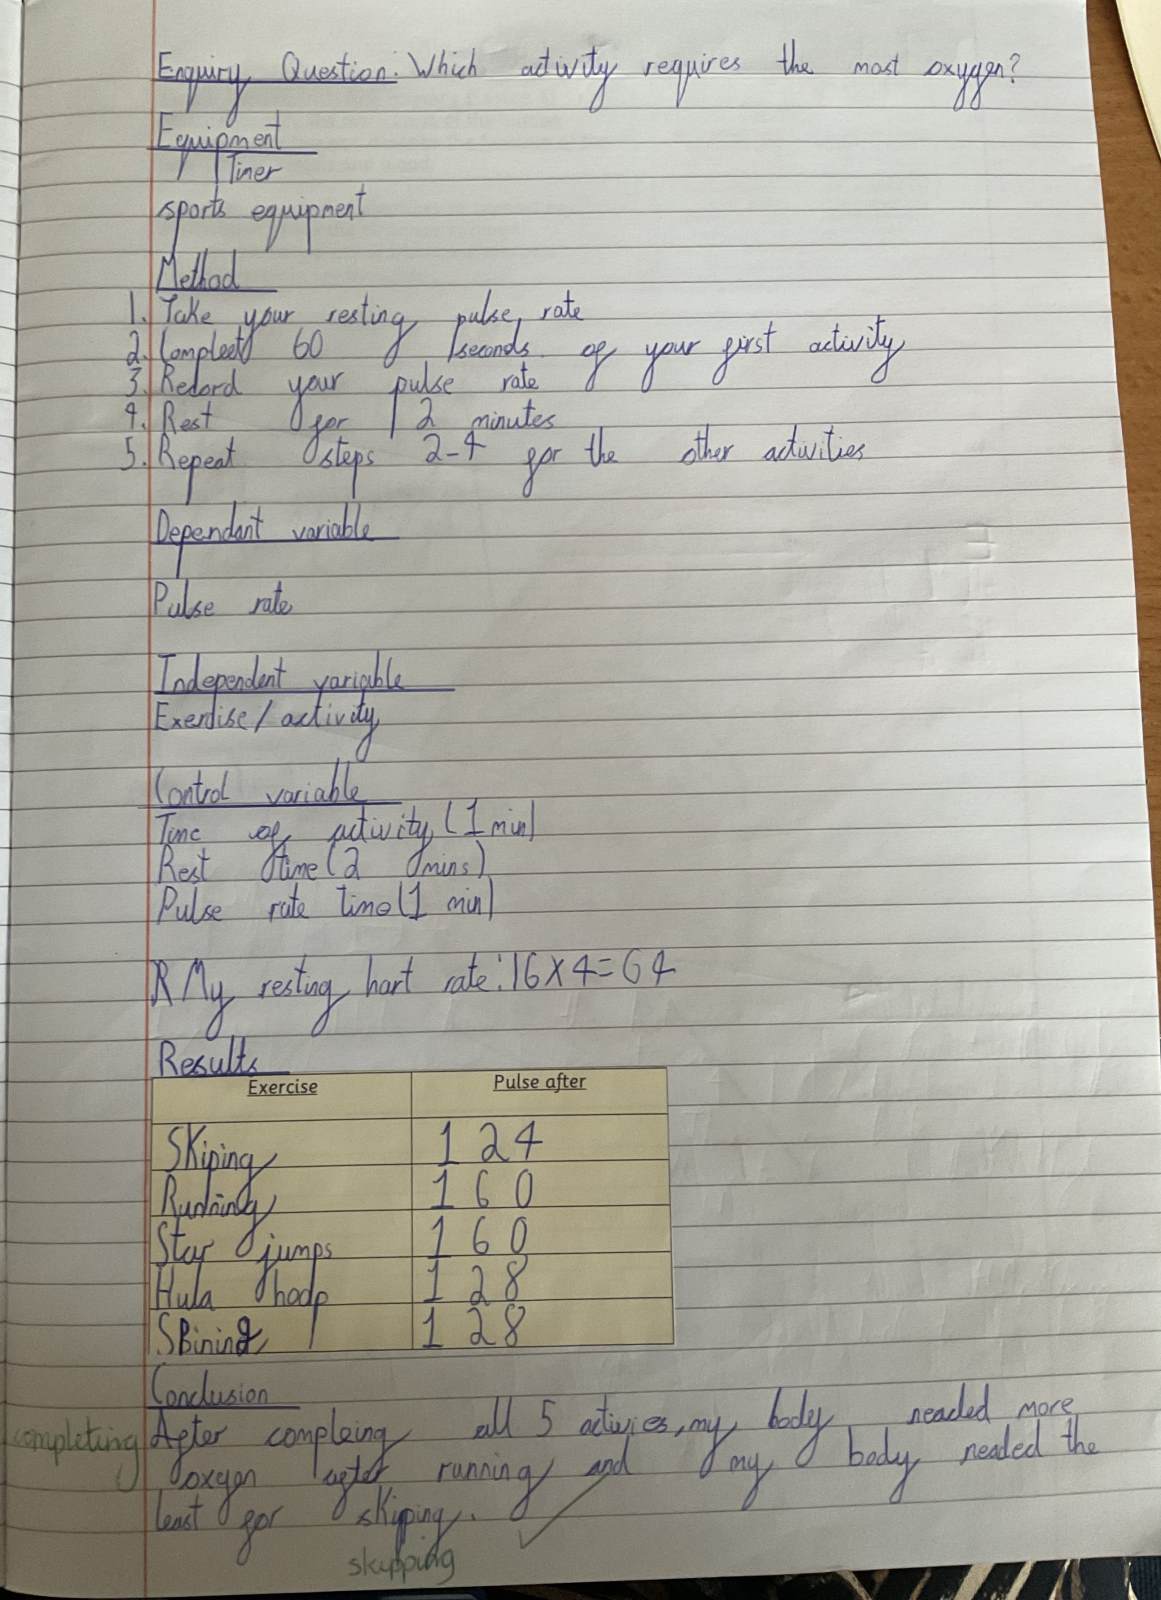 Enquiry Question: Which activity requires the most oxygen?
Equipment
Timer
sports equipment
Method
1. Take your resting pulse rate
2. Compleet 60 seconds of your first activity
3. Record your pulse rate
4. Rest for 2 minutes
5. Repeat steps 2-4 for the other activities
Dependant variable
Pulse rate
Independent variable
Exercise/activity
Control variable
Time of activity (1 min)
Rest time (2 mins)
Pulse rate time (1 min)
R My resting hart rate: 16x4=64
Results
Exercise Pulse after
Skiping 124
Running 160
Star jumps 160
Hula hoop 128
SBining 128
Conclusion
completing After compleing all 5 activies, my body neaded more
oxygen after running and my body neaded the
least for skiping.
skipping